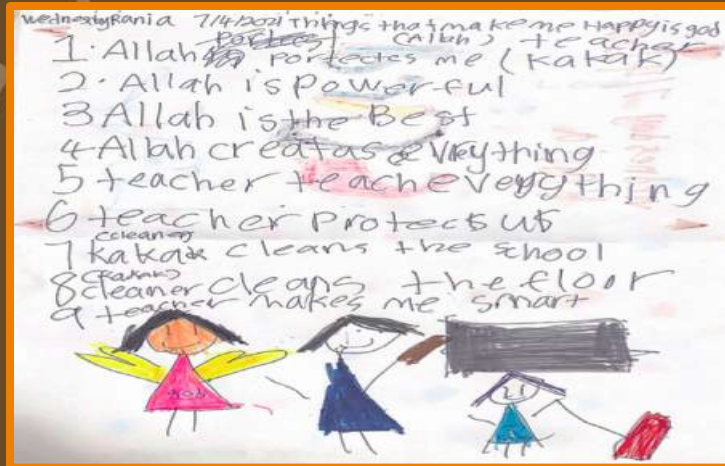 wednesday Rania 7/4/2021 Things that make me Happy is god
(Allah) teacher
1. Allah portectes me (kakak)
2. Allah is powerful
3 Allah is the Best
4 Allah creatas evrything
5 teacher teach everything
6 teacher protects us
(cleaner)
7 kakak cleans the school
(kakak)
8 cleaner cleans the floor
9 teacher makes me smart